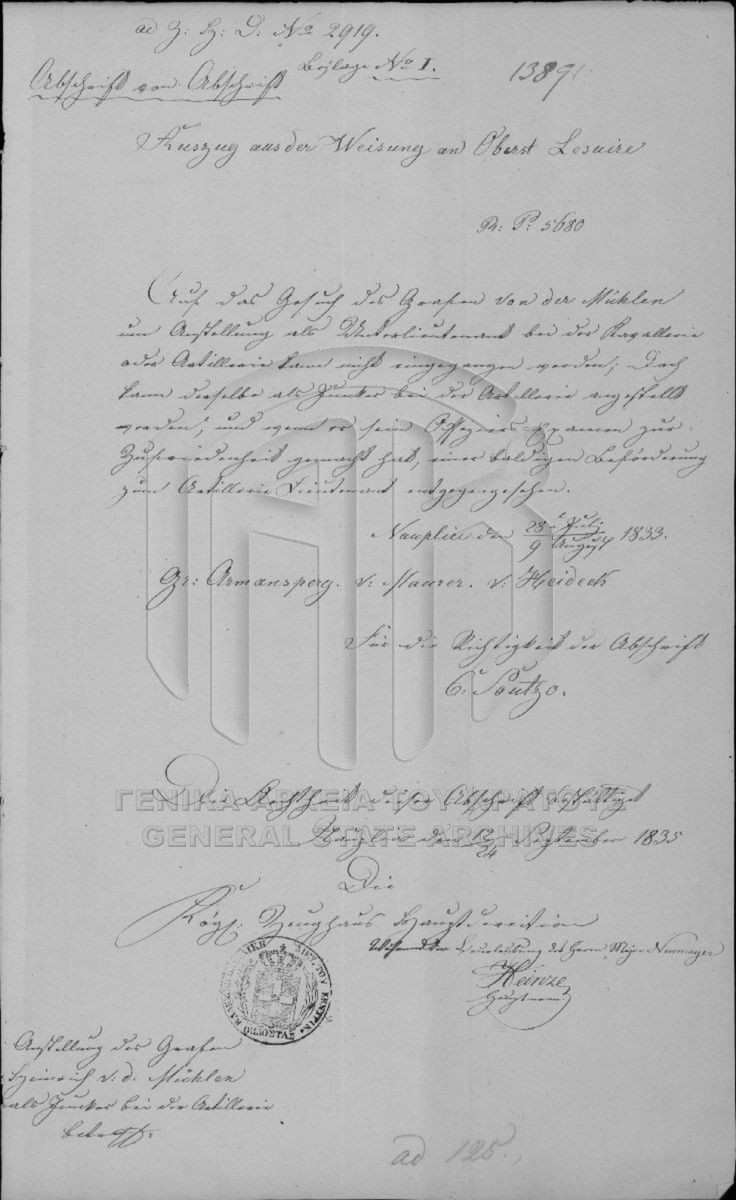 ad Z: H: D: No 2919.
Beylage No I.
13891
Abschrift von Abschrift
Auszug aus der Weisung an Oberst Lesuire
R: P: 5680
Auf das Gesuch des Grafen von der Mühlen
um Anstellung als Unterlieutenant bei der Kavallerie
oder Artillerie kann nicht eingegangen werden; doch
kann derselbe als Junker bei der Artillerie angestellt
werden, und wenn er sein Offiziers-Examen zur
Zufriedenheit gemacht hat, einer baldigen Beförderung
zum Artillerie Lieutenant entgegengesehen.
Nauplia den 28 Juli / 9 August 1833.
Gr: Armansperg. v: Maurer. v: Heideck
Für die Richtigkeit der Abschrift
C: Soutzo.
Die Aechtheit dieser Abschrift bestättiget
Nauplia den 12/24 September 1835
Die
Königl: Zeughaus Hauptdirection
Beurlaubung des Herrn Major Neumayer
Heinze
Hauptmann
Anstellung des Grafen
Heinrich v: d: Mühlen
als Junker bei der Artillerie
betreff:
ad 125.
ΓΕΝΙΚΑ ΑΡΧΕΙΑ ΤΟΥ ΚΡΑΤΟΥΣ
GENERAL STATE ARCHIVES